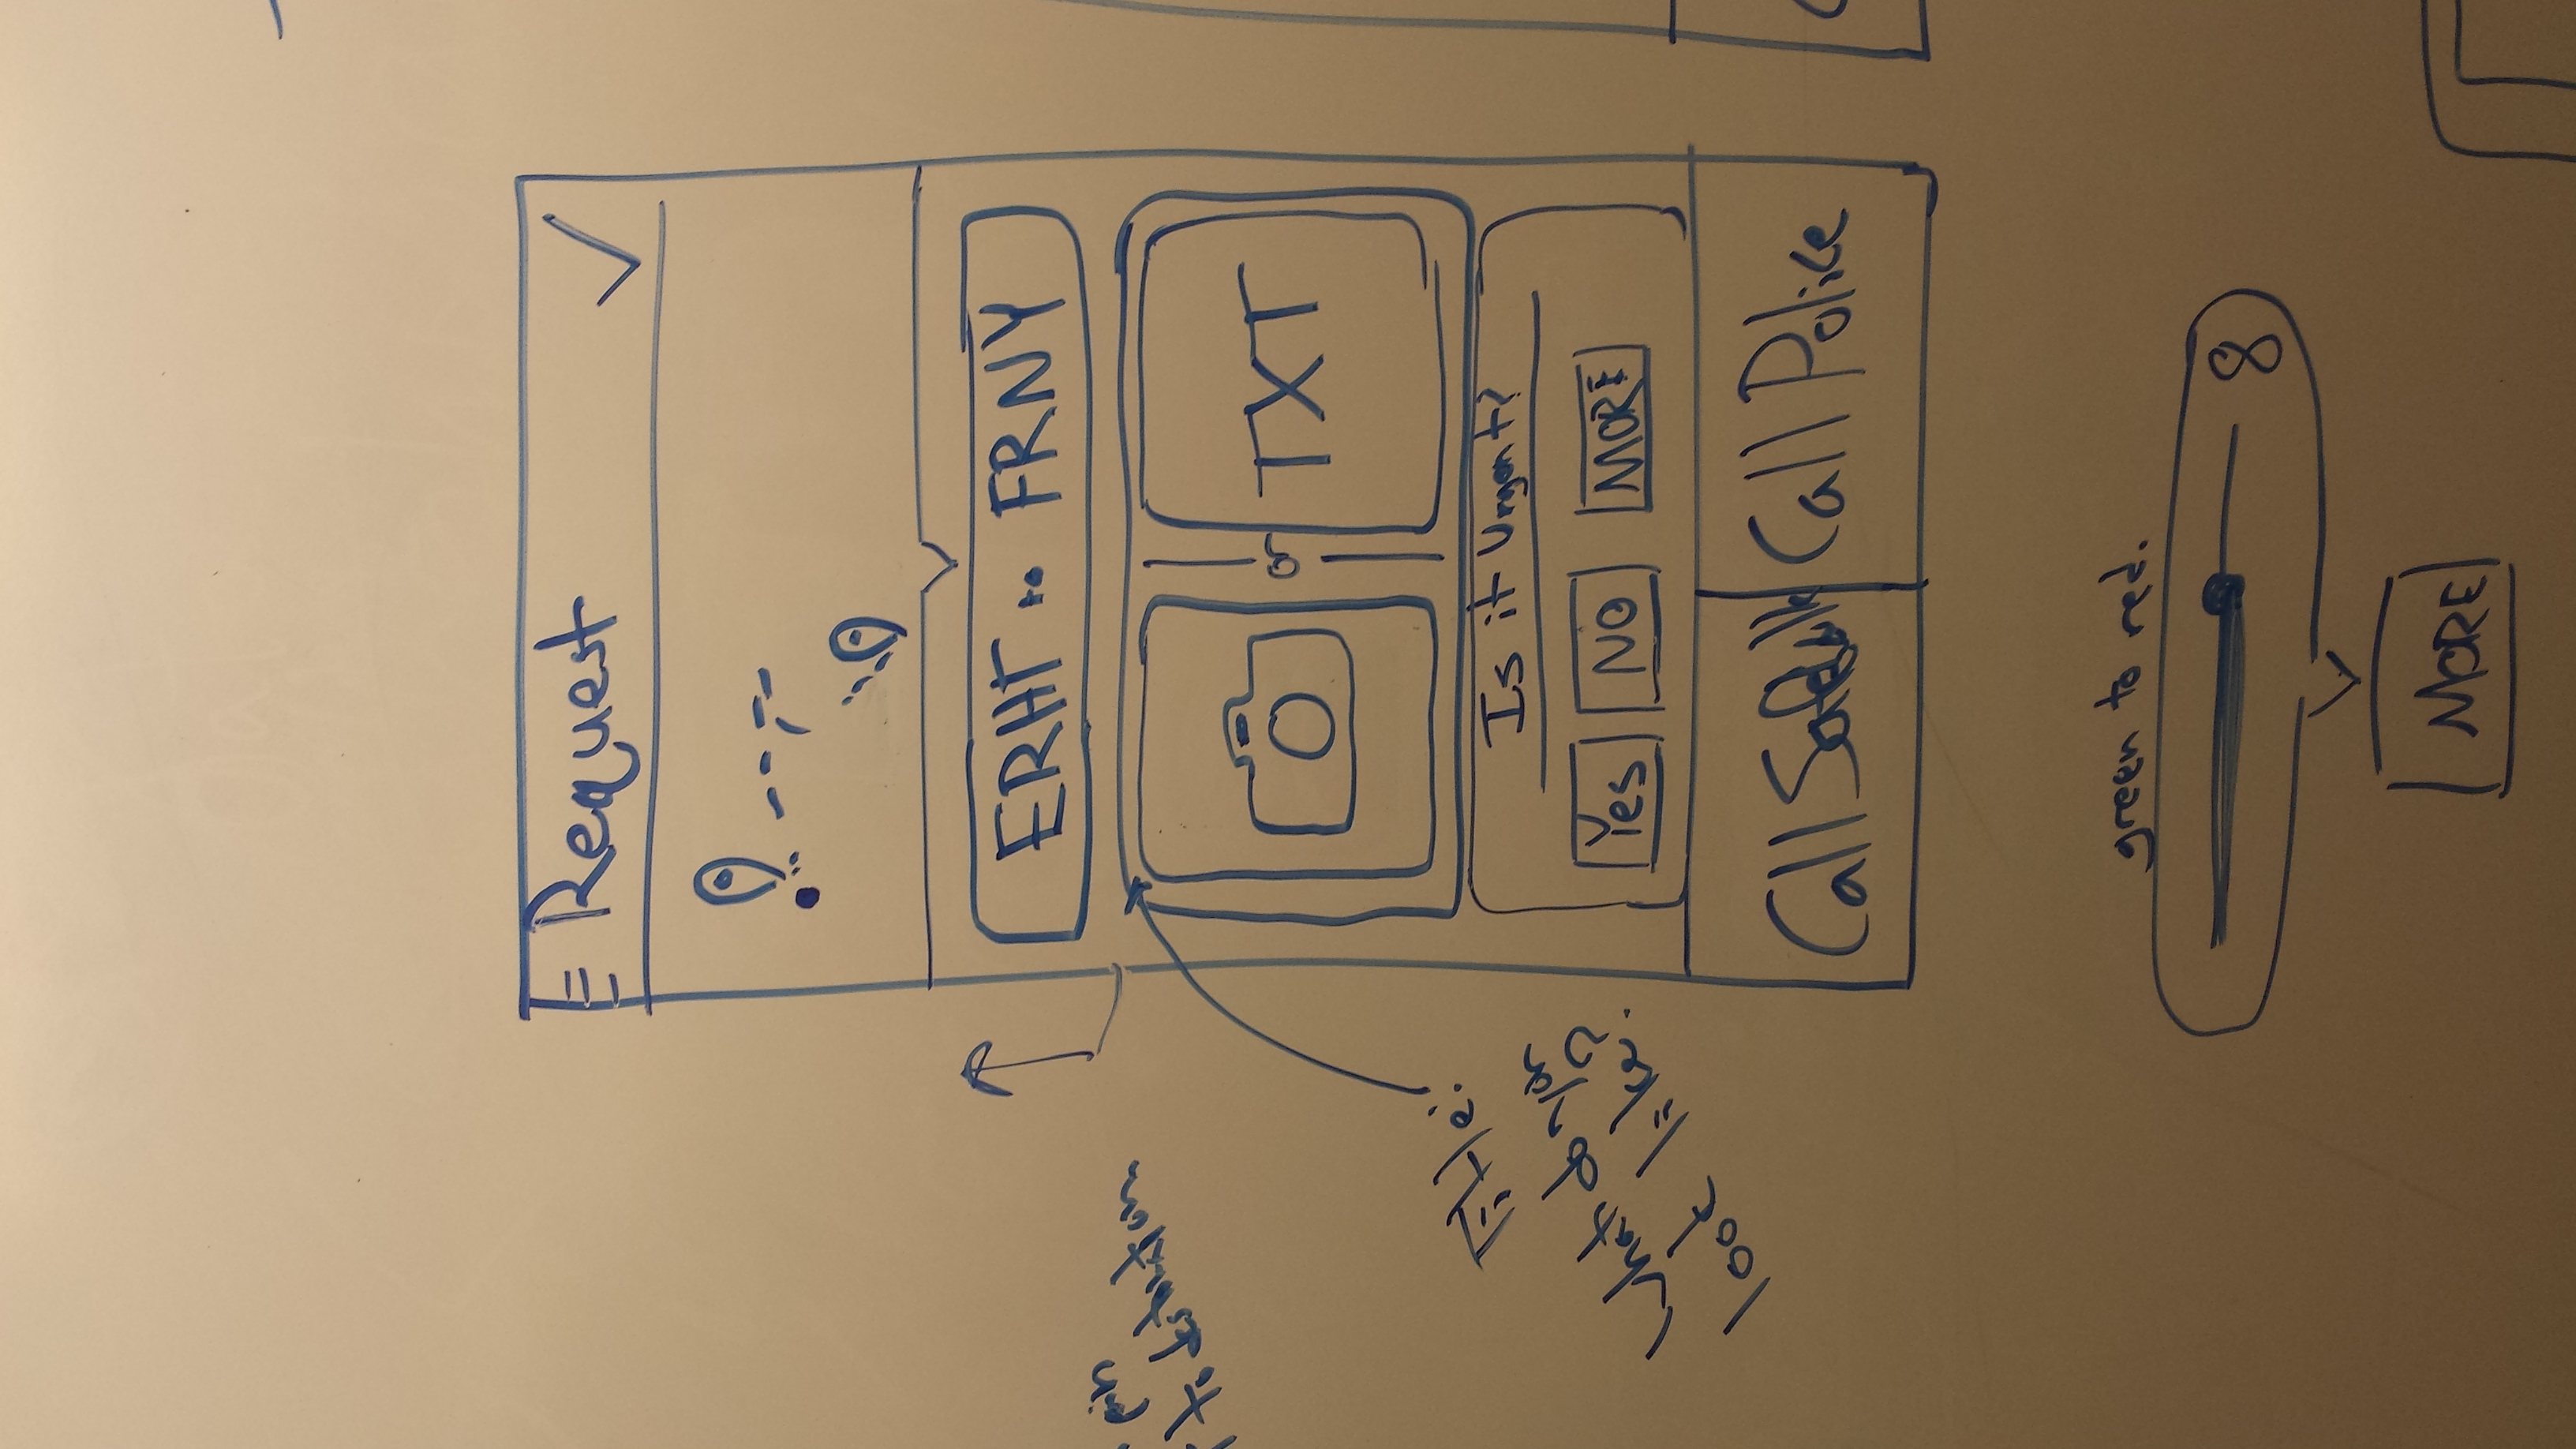 Request
ERHT to FRNY
pin
to destination
or
TXT
Title:
Whats do you
look like?
Is it Urgent?
Yes NO MORE
Call Safewalk Call Police
green to red.
8
MORE